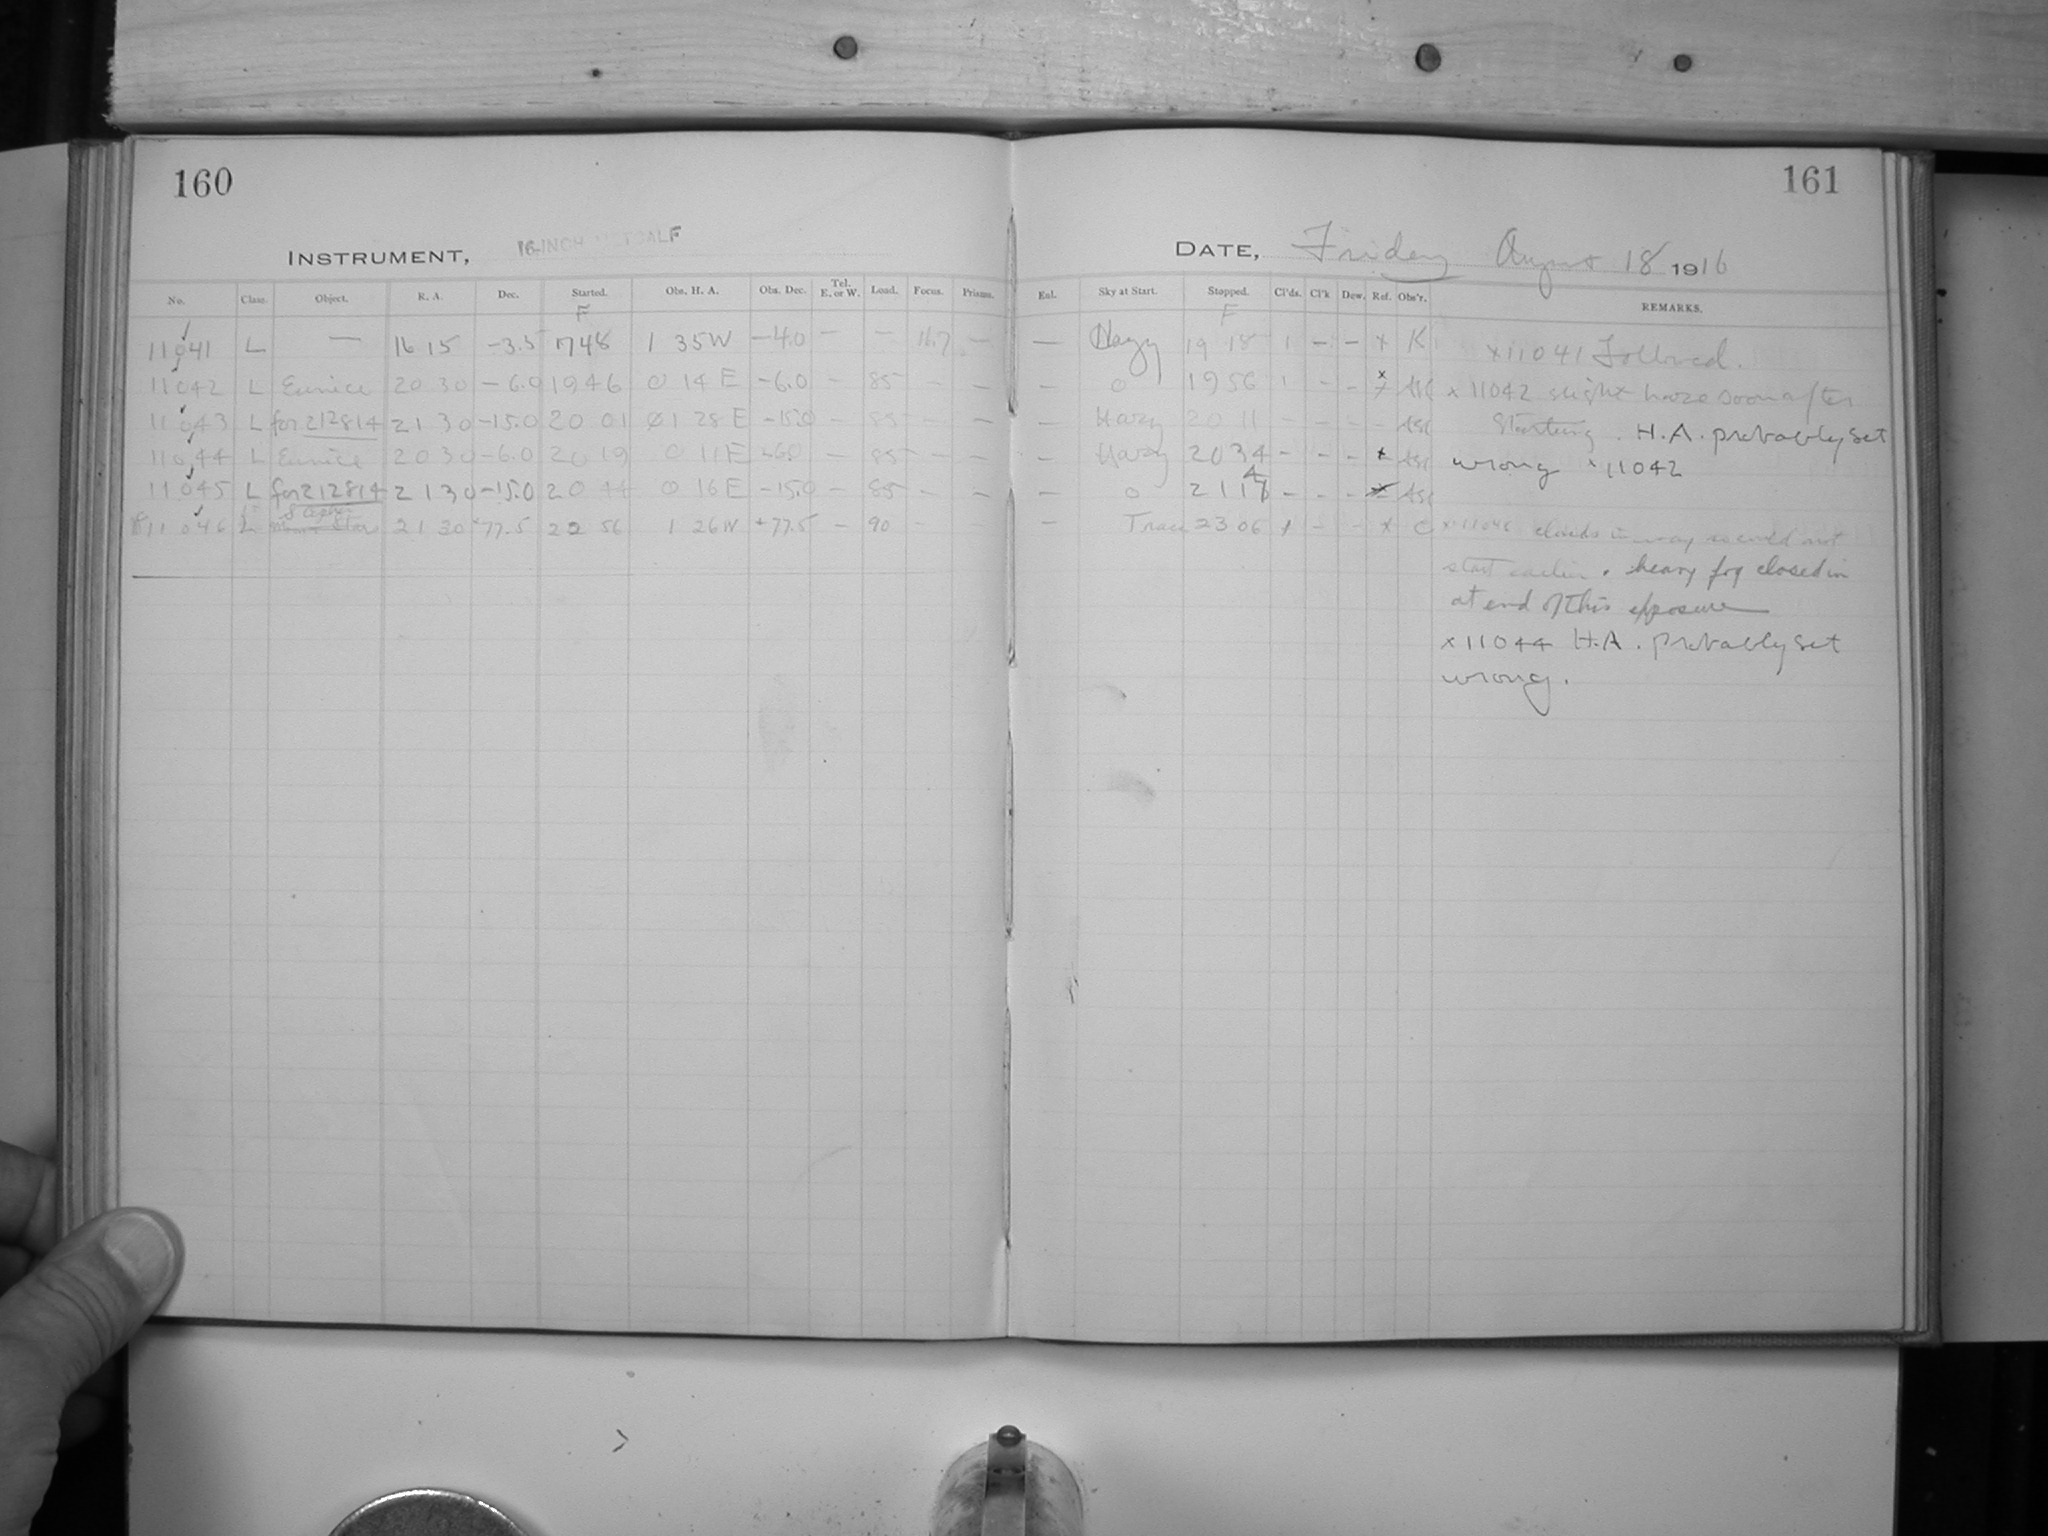 160
161
INSTRUMENT, 16-INCH METCALF
DATE, Friday August 18 1916
No. Class. Object. R. A. Dec. Started. Obs. H. A. Obs. Dec. Tel. E. or W. Load. Focus. Prisms. Enl. Sky at Start. Stopped. Cl'ds. Cl'k Dew. Ref. Obs'r. REMARKS.
F F
11041 L — 16 15 -3.5 1748 1 35W -4.0 — — 16.7 — — Hazy 19 18 1 — — x K x11041 Followed.
11042 L Eunice 20 30 -6.0 1946 0 14 E -6.0 - 85 - - - 0 1956 1 - - x x 11042 slight haze soon after
11043 L for 212814 21 30 -15.0 20 01 01 28 E -15.0 - 85 - - - Hazy 20 11 - - - - starting. H.A. probably set
11044 L Eunice 20 30 -6.0 2019 0 11 E -6.0 - 85 - - - Hazy 2034 - - - x wrong x11042
11045 L for 212814 21 30 -15.0 20 44 0 16 E -15.0 - 85 - - - 0 2117 - - - x
S Cephei
11046 L 21 30 +77.5 22 56 1 26W +77.5 - 90 - - Trace 2306 1 - - x C x11046 clouds in way so could not
start earlier. heavy fog closed in
at end of this exposure
x11044 H.A. probably set
wrong.